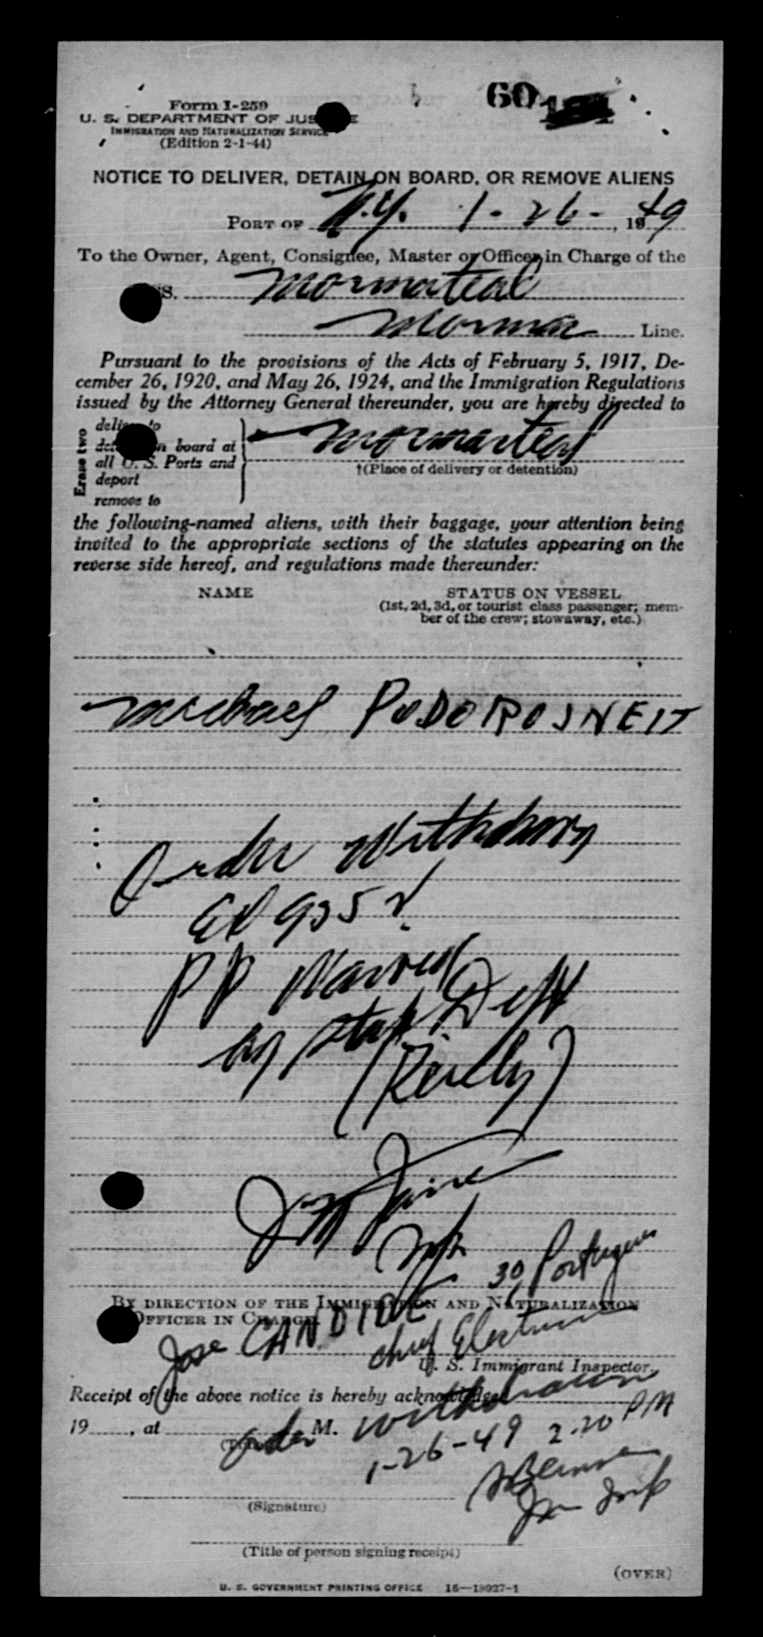 60
Form I-259
U. S. DEPARTMENT OF JUSTICE
IMMIGRATION AND NATURALIZATION SERVICE
(Edition 2-1-44)
NOTICE TO DELIVER, DETAIN ON BOARD, OR REMOVE ALIENS
PORT OF N.Y. 1-26-, 1949
To the Owner, Agent, Consignee, Master or Officer in Charge of the
S. Mormacteal
Mormac Line.
Pursuant to the provisions of the Acts of February 5, 1917, De-
cember 26, 1920, and May 26, 1924, and the Immigration Regulations
issued by the Attorney General thereunder, you are hereby directed to
Erase two
deliver to
detain on board at
all U. S. Ports and
deport
remove to
Mormacteal
†(Place of delivery or detention)
the following-named aliens, with their baggage, your attention being
invited to the appropriate sections of the statutes appearing on the
reverse side hereof, and regulations made thereunder:
NAME STATUS ON VESSEL
(1st, 2d, 3d, or tourist class passenger; mem-
ber of the crew; stowaway, etc.)
Michael PODOROSNEIT
Order Withdrawn
PP Waived
by State Dept
(Reilly)
30 Portuguese
BY DIRECTION OF THE IMMIGRATION AND NATURALIZATION
OFFICER IN CHARGE
Jose CANDIDE
Chief Electrician
U. S. Immigrant Inspector.
Receipt of the above notice is hereby acknowledged
19 , at M.
order withdrawn
1-26-49 2:20 PM
(Signature)
(Title of person signing receipt)
(OVER)
U. S. GOVERNMENT PRINTING OFFICE 16—19027-1